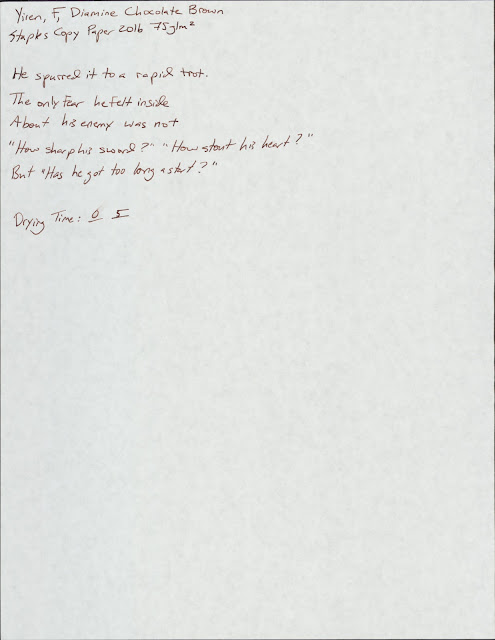 Yiren, F, Diamine Chocolate Brown
Staples Copy Paper 20lb 75g/m²
He spurred it to a rapid trot.
The only fear he felt inside
About his enemy was not
"How sharp his sword?" "How stout his heart?"
But "Has he got too long a start?"
Drying Time: 0 5